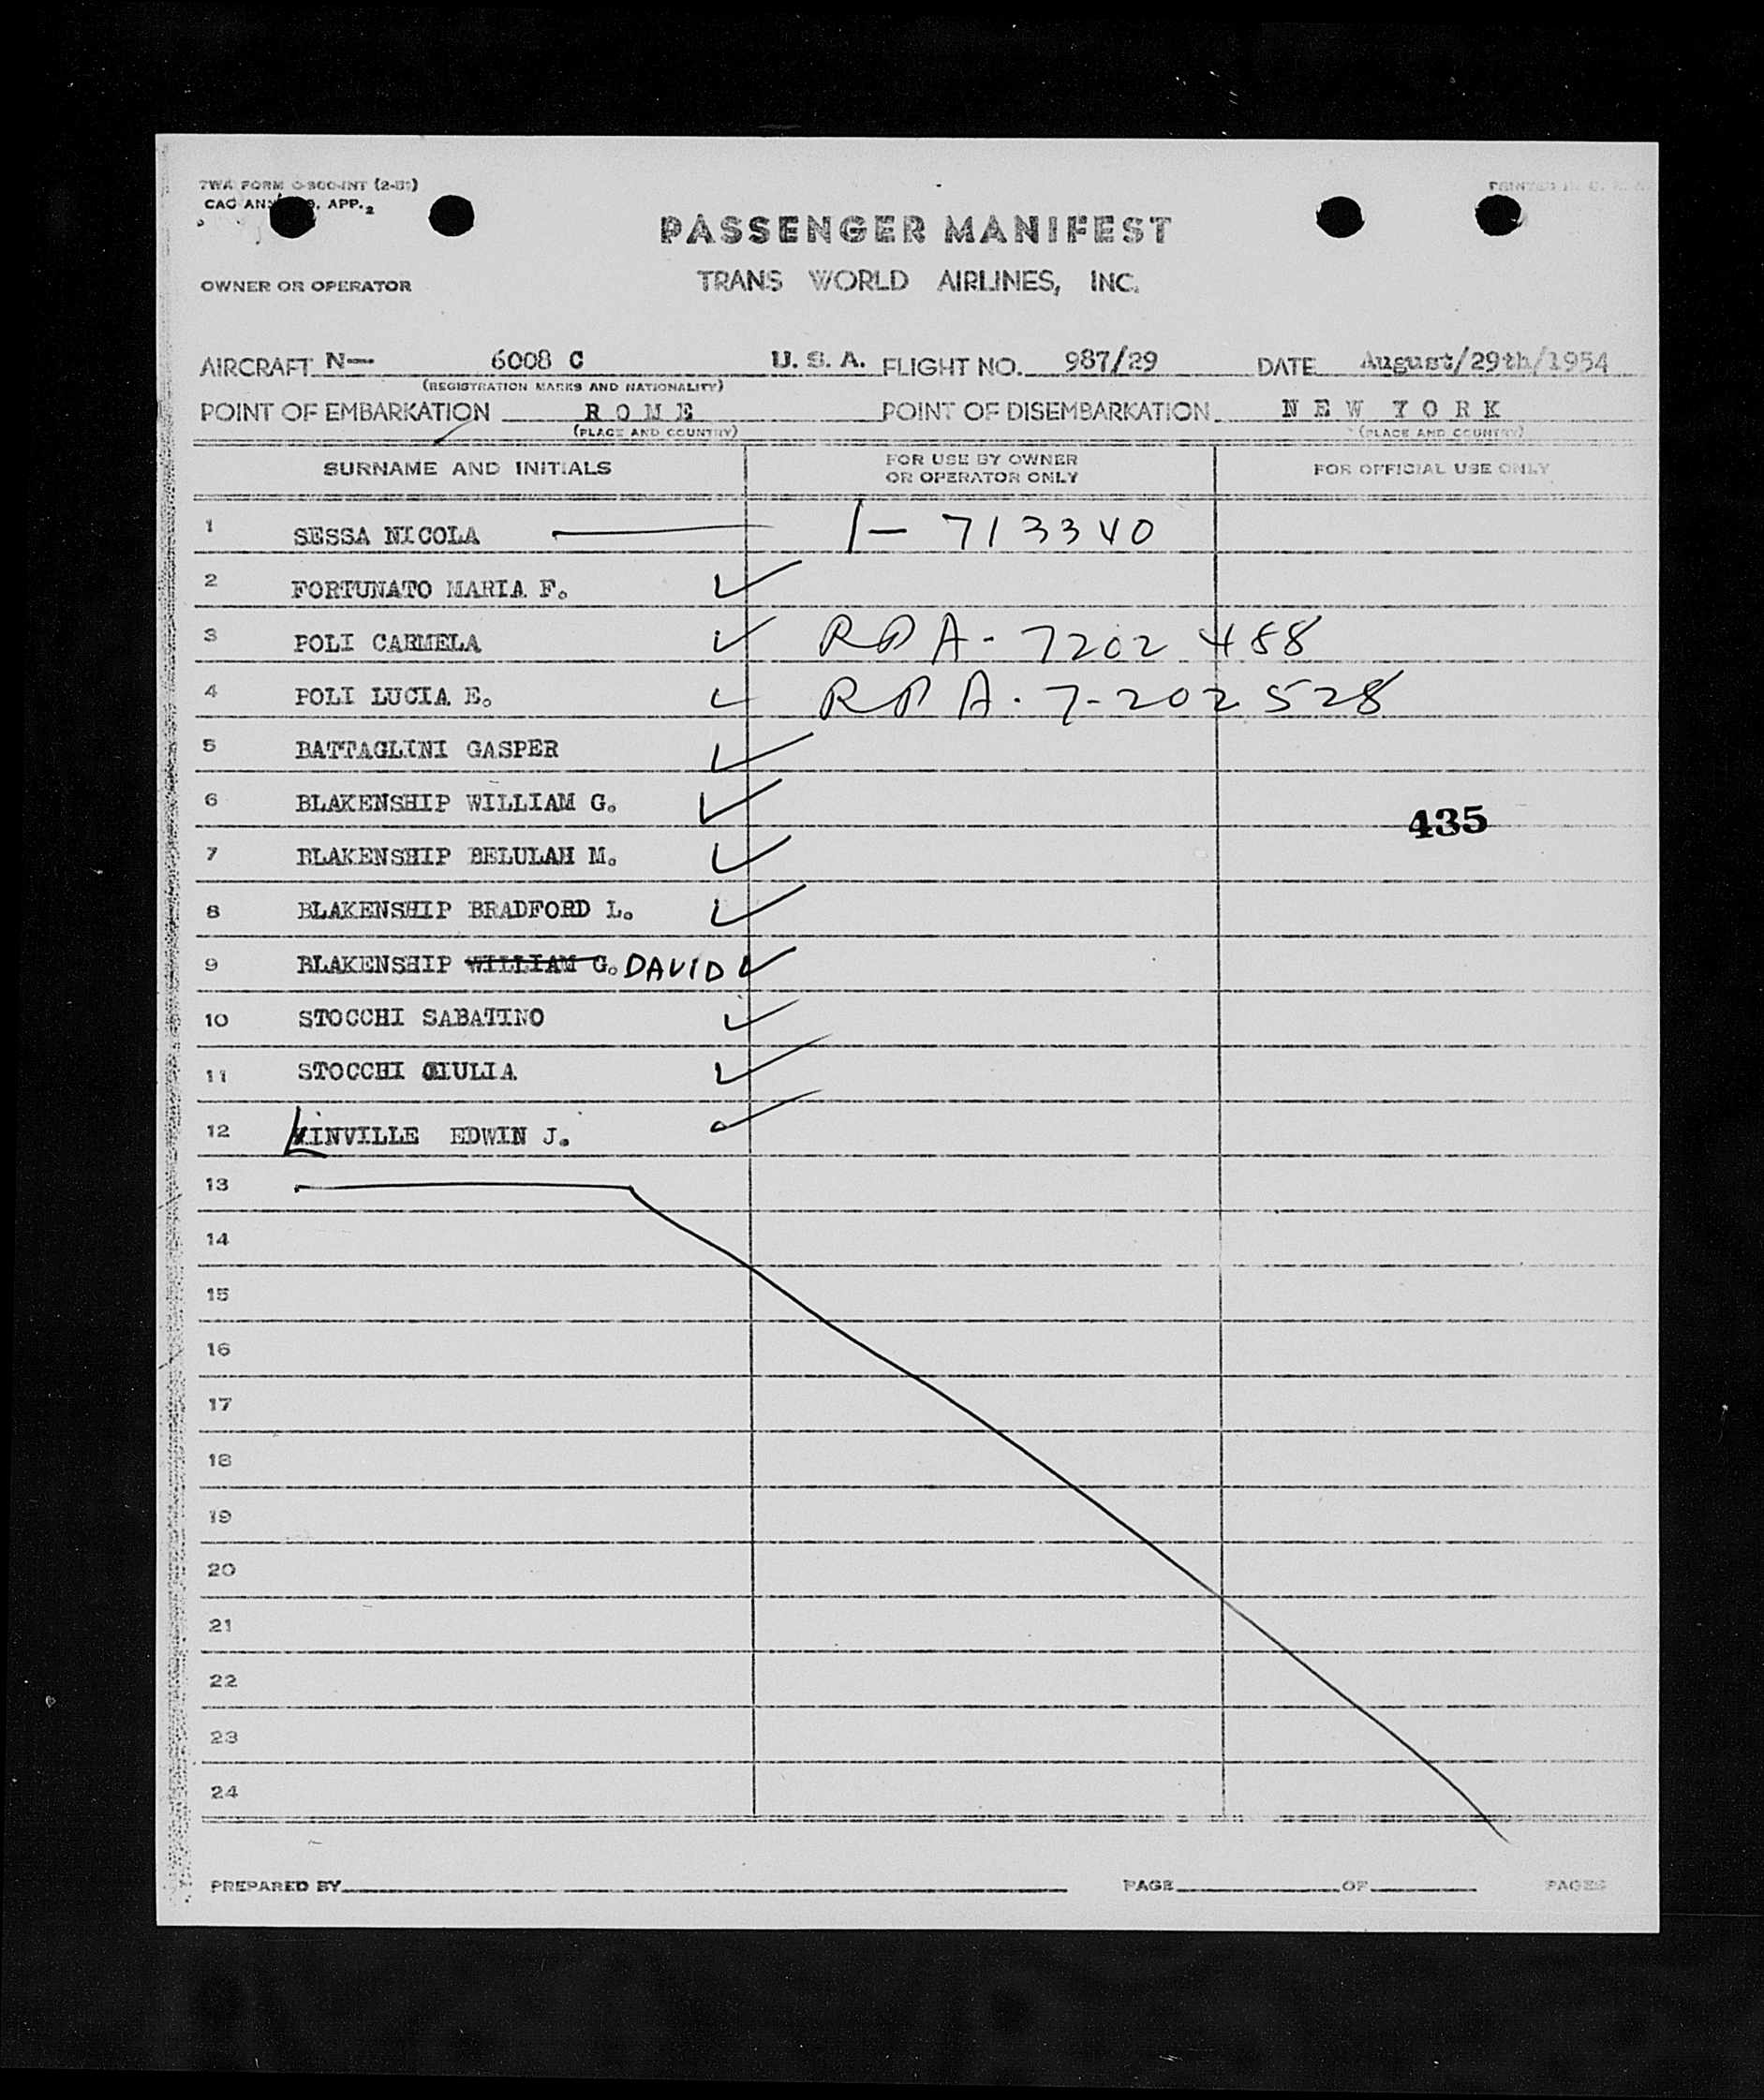 TWA FORM O-800-INT (2-51)
CAO ANN 9, APP. 2
PRINTED IN U. S. A.
PASSENGER MANIFEST
OWNER OR OPERATOR
TRANS WORLD AIRLINES, INC.
AIRCRAFT N— 6008 C U. S. A. FLIGHT NO. 987/29 DATE August/29th/1954
(REGISTRATION MARKS AND NATIONALITY)
POINT OF EMBARKATION R O M E POINT OF DISEMBARKATION N E W Y O R K
(PLACE AND COUNTRY) (PLACE AND COUNTRY)
SURNAME AND INITIALS FOR USE BY OWNER OR OPERATOR ONLY FOR OFFICIAL USE ONLY
1 SESSA NICOLA 1- 713340
2 FORTUNATO MARIA F.
3 POLI CARMELA RPA- 7202 488
4 POLI LUCIA E. RPA. 7-202 528
5 BATTAGLINI GASPER
6 BLAKENSHIP WILLIAM G.
435
7 BLAKENSHIP BELULAH M.
8 BLAKENSHIP BRADFORD L.
9 BLAKENSHIP WILLIAM G. DAVID
10 STOCCHI SABATINO
11 STOCCHI GIULIA
12 LINVILLE EDWIN J.
13
14
15
16
17
18
19
20
21
22
23
24
PREPARED BY PAGE OF PAGES